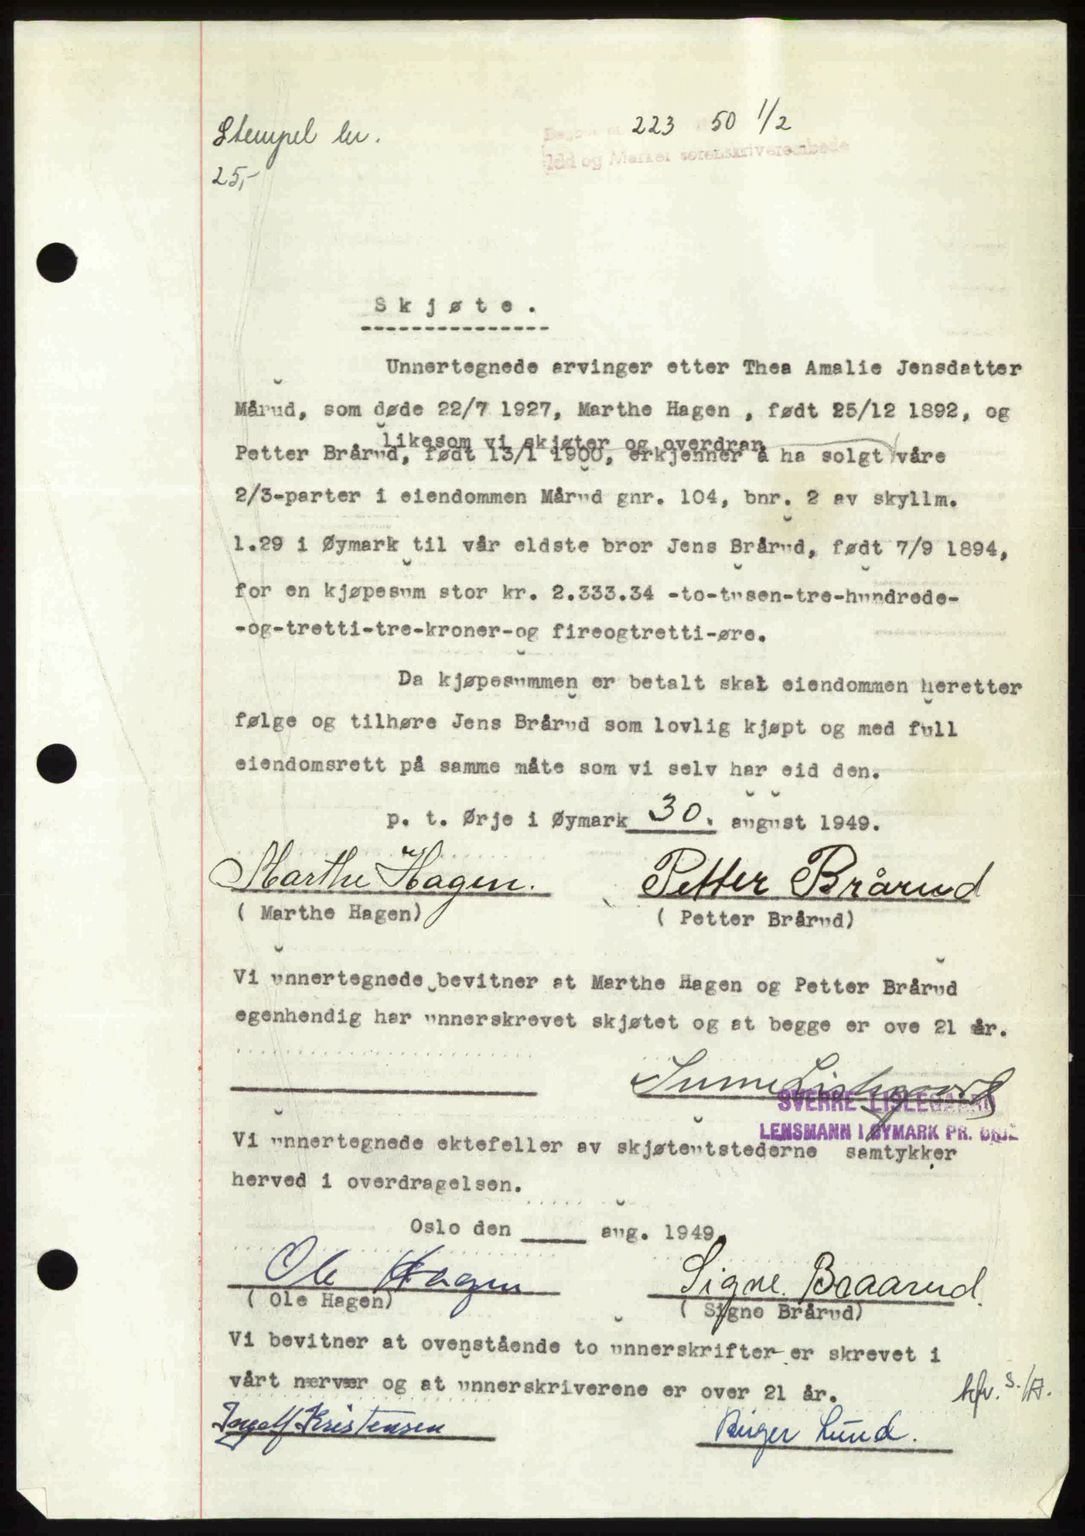 Stempel kr.
25,-
223 50 1/2
Idd og Marker sorenskriverembede
Skjøte.
Unnertegnede arvinger etter Thea Amalie Jensdatter
Mårud, som døde 22/7 1927, Marthe Hagen , født 25/12 1892, og
likesom vi skjøter og overdrar
Petter Brårud, født 13/1 1900, erkjenner å ha solgt våre
2/3-parter i eiendommen Mårud gnr. 104, bnr. 2 av skyllm.
1.29 i Øymark til vår eldste bror Jens Brårud, født 7/9 1894,
for en kjøpesum stor kr. 2.333.34 -to-tusen-tre-hundrede-
-og-tretti-tre-kroner-og fireogtretti-øre.
Da kjøpesummen er betalt skal eiendommen heretter
følge og tilhøre Jens Brårud som lovlig kjøpt og med full
eiendomsrett på samme måte som vi selv har eid den.
p. t. Ørje i Øymark 30. august 1949.
Marthe Hagen. Petter Brårud
( Marthe Hagen) ( Petter Brårud)
Vi unnertegnede bevitner at Marthe Hagen og Petter Brårud
egenhendig har unnerskrevet skjøtet og at begge er ove 21 år.
SVERRE LISLEGAARD
LENSMANN I ØYMARK PR. ØRJE
Vi unnertegnede ektefeller av skjøteutstederne samtykker
herved i overdragelsen.
Oslo den aug. 1949
Ole Hagen Signe Braarud.
( Ole Hagen) ( Signe Brårud)
Vi bevitner at ovenstående to unnerskrifter er skrevet i
vårt nærvær og at unnerskriverene er over 21 år.
Ingolf Kristensen Birger Lund.